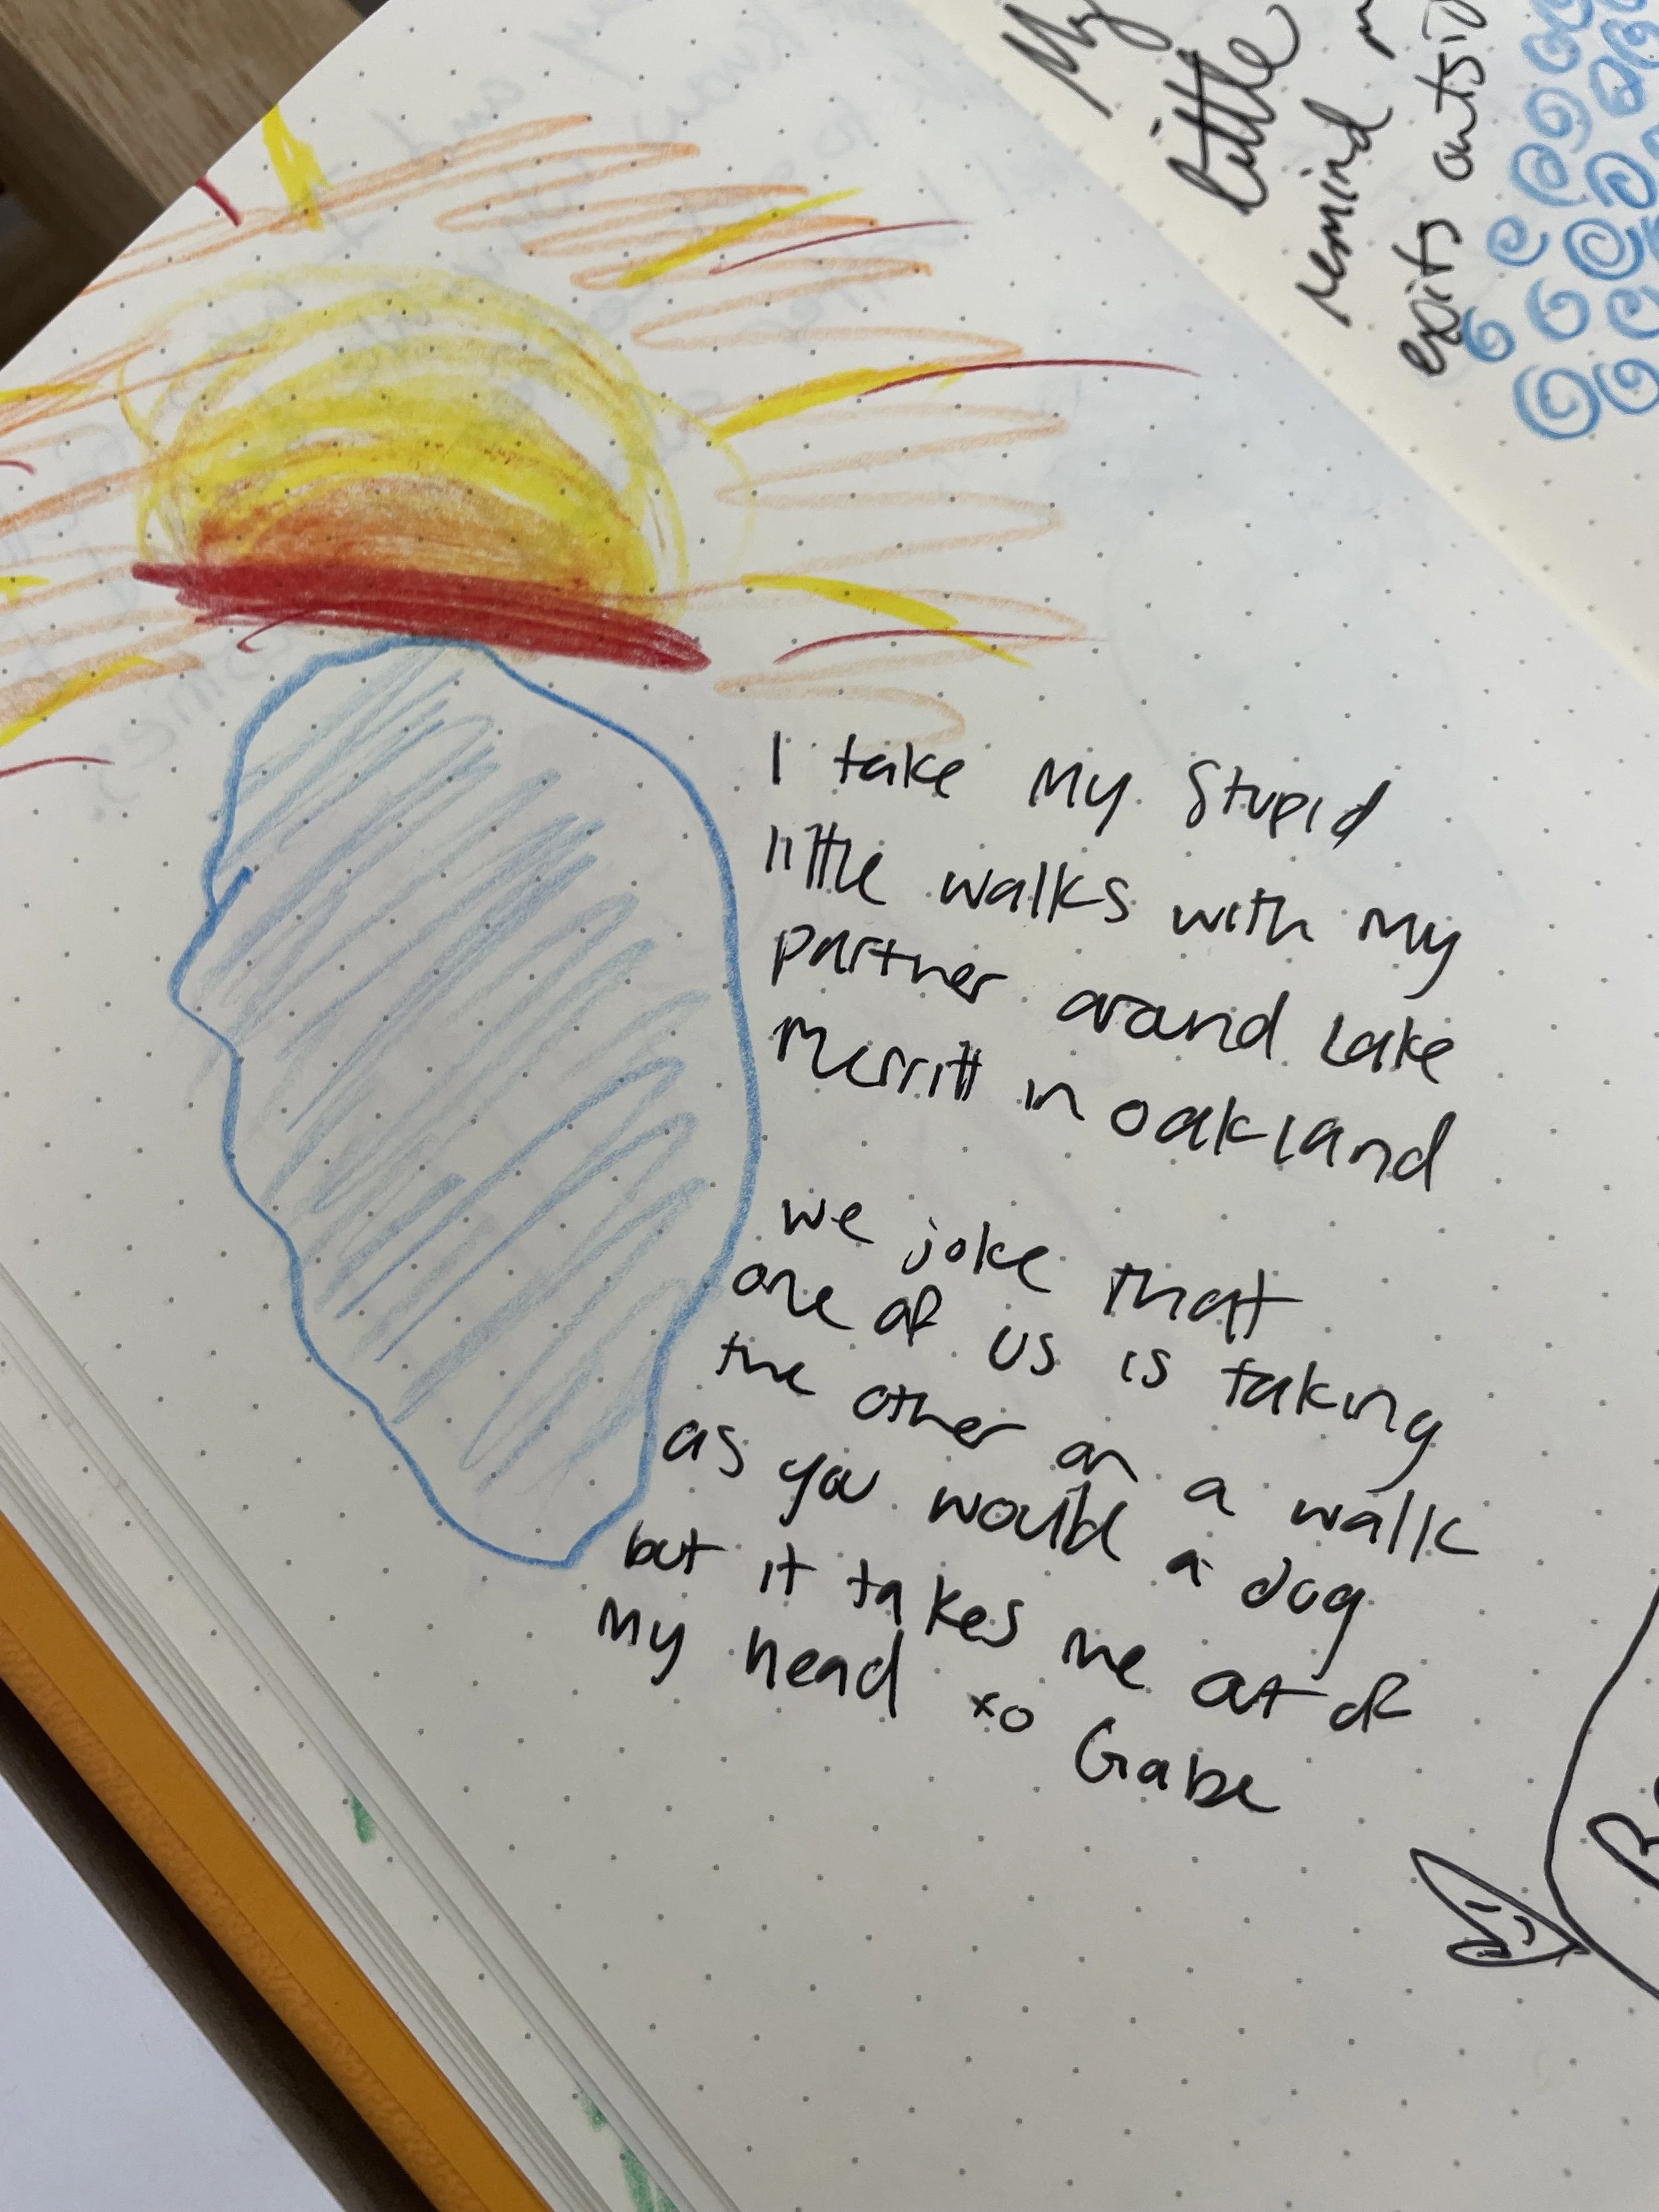 I take my stupid
little walks with my
partner around Lake
Merritt in oakland
we joke that
one of us is taking
the other on a walk
as you would a dog
but it takes me out of
my head xo Gabe
My
little
remind
exits outsid